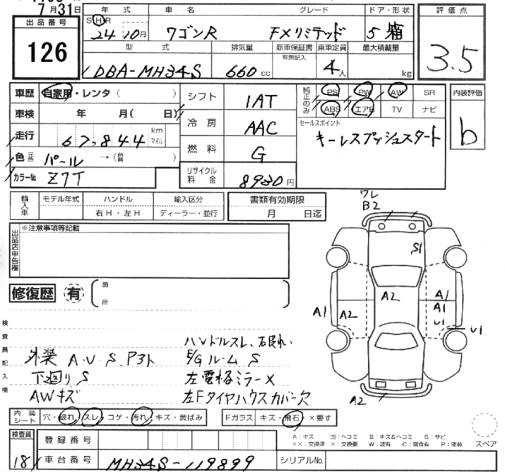 7月31日
出品番号
126
年式 車名 グレード ドア・形状
S・H・R 24年10月 ワゴンR FXリミテッド 5 箱
型式 排気量 新車保証書 乗車定員 最大積載量
DBA-MH34S 660cc 4人 kg
評価点
3.5
車歴 自家用・レンタ( )
車検 年 月( 日)
走行 67,844 km マイル
色 パール →(替色)
カラーNo. Z7T
シフト 1AT
冷房 AAC
燃料 G
リサイクル料金 8930円
純正のみ PS PW AW SR
ABS エアB TV ナビ
セールスポイント
キーレスプッシュスタート
内装評価
b
輸入車 モデル年式 ハンドル 輸入区分
右H・左H ディーラー・並行
書類有効期限
月 日迄
出品店申告欄
※注意事項等記載
修復歴 有
箇所
検査員記入欄
外装 A U S P3ト
下廻り S
AWキズ
ハンドルスレ、右座れ
E/Gルーム S
左電格ミラー×
左Fタイヤハウスカバー欠
ワレ
B2
S1
A2
A1
A1
A2
A1
U1
U1
A2
内装シート 穴・破れ・スレ・コゲ・汚れ・キズ・黄ばみ
Fガラス キズ・飛石・×要す
A:キズ U:ヘコミ B:キズ&ヘコミ S:サビ
××:交換済 ×:交換要 W:波有 C:腐食有 P:塗装
スペア
検査員
181
登録番号
車台番号 MH34S-119899
シリアルNo.